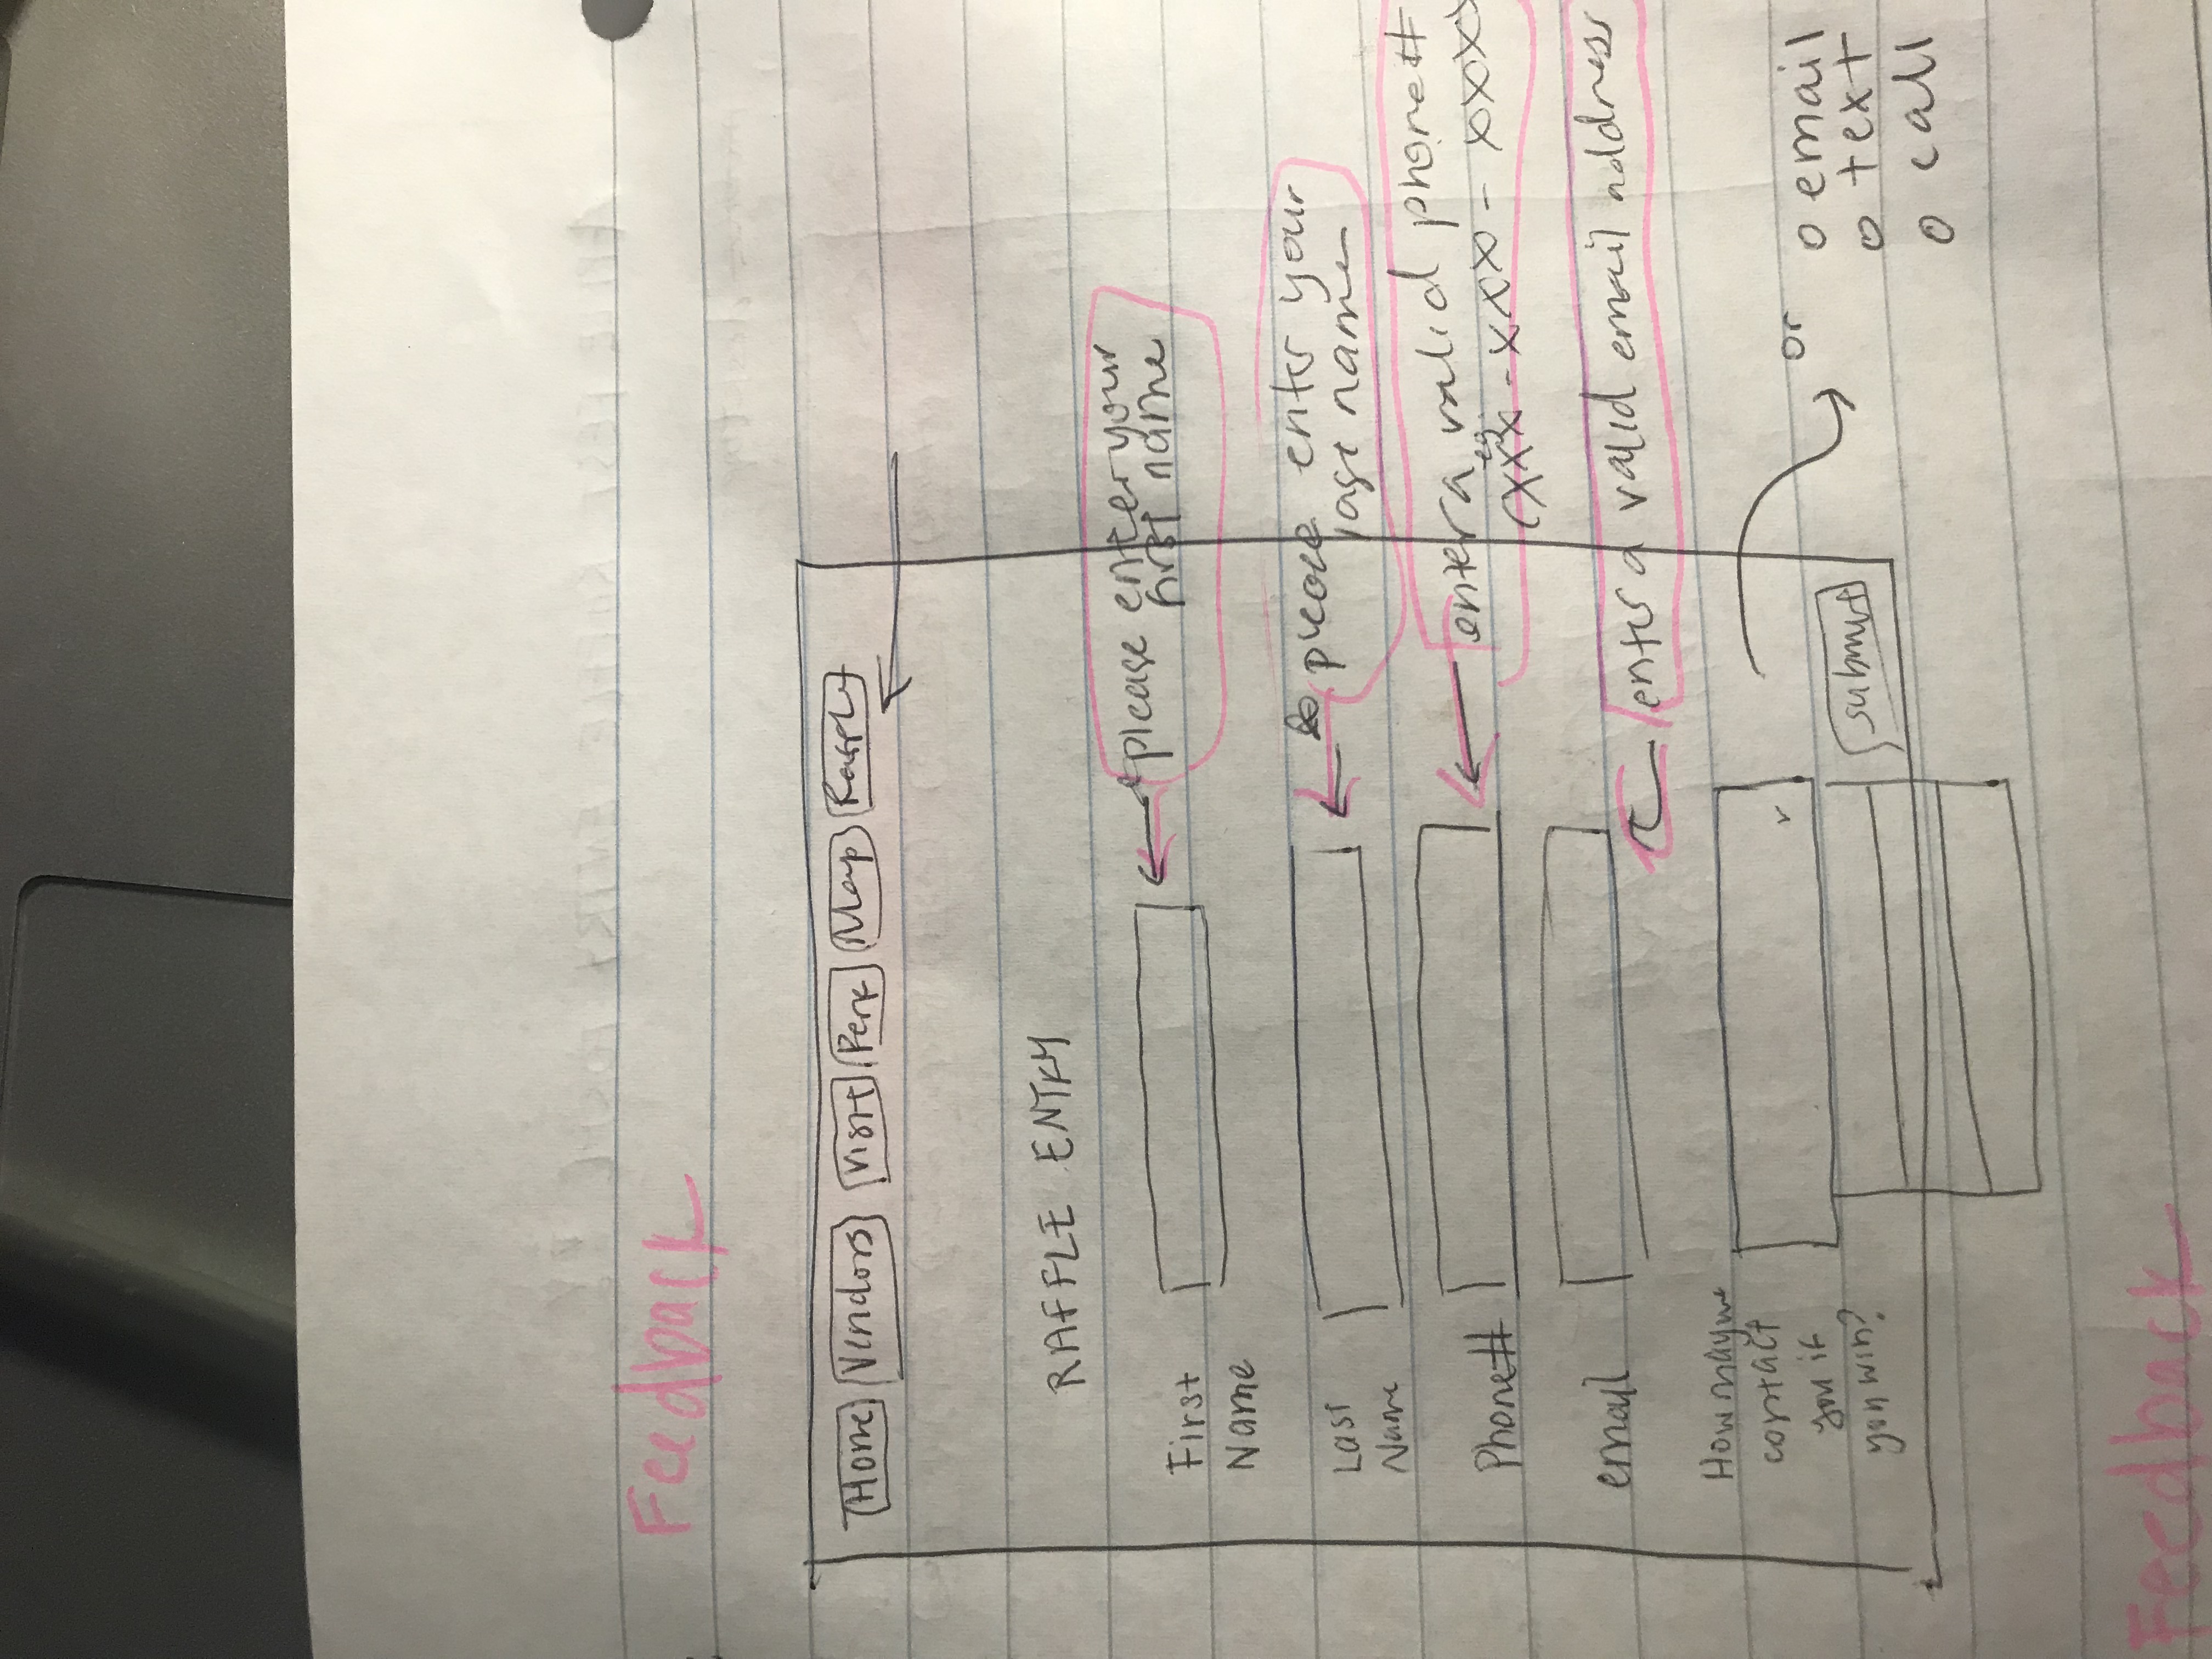 Feedback
Home Vendors Visit Perk Map Raffle
RAFFLE ENTRY
please enter your
first name
First
Name
please enter your
last name
Last
Name
enter a valid phone#
eg.
(xxx - xxx - xxxx
Phone#
email
enter a valid email address
How may we
contact
you if
you win?
or
o email
o text
o call
submit
Feedback